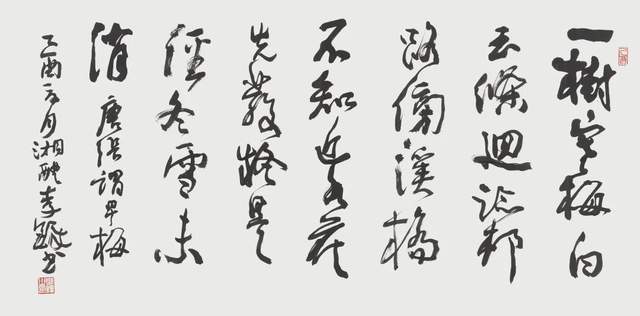 一樹寒梅白
玉條迴臨邨
路傍溪橋
不知近水花
先發疑是
經冬雪未
消 唐張謂早梅
乙酉 月湘醴李鐸书